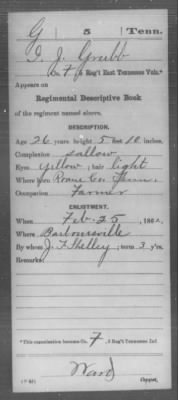 G 5 Tenn.
I. J. Grubb
Co. F, 5 Reg't East Tennessee Vols.*
Appears on
Regimental Descriptive Book
of the regiment named above.
DESCRIPTION.
Age 26 years; height 5 feet 10 inches.
Complexion Sallow
Eyes Yellow; hair light
Where born Roane Co. Tenn.
Occupation Farmer
ENLISTMENT.
When Feb. 25, 1862.
Where Barboursville
By whom J. T. Shelley; term 3 y'rs.
Remarks:
*This organization became Co. F, 5 Reg't Tennessee Inf.
Ward
Copyist.